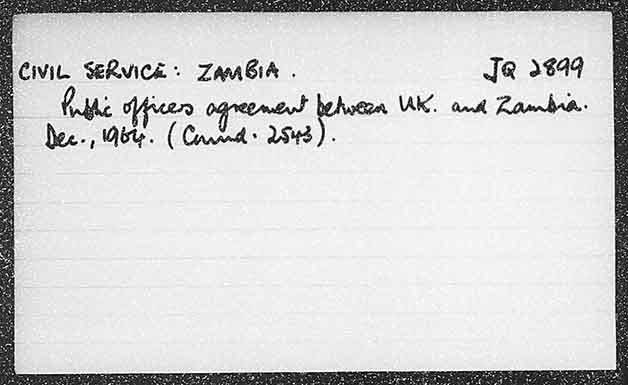 CIVIL SERVICE: ZAMBIA. JQ 2899
Public officers agreement between UK. and Zambia.
Dec., 1964. (Cmnd. 2543).